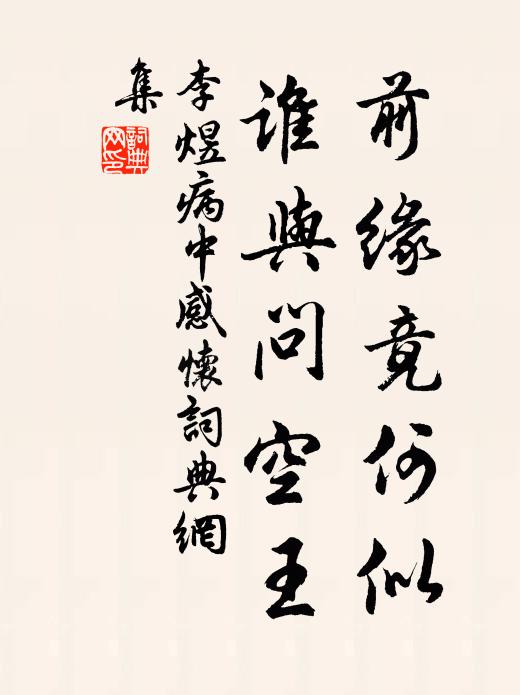 前緣竟何似
誰與問空王
李煜病中感懷詞典網
集
詞典
网印